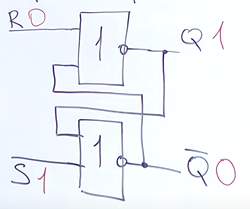 R0
1
Q1
1
S1
Q̅0